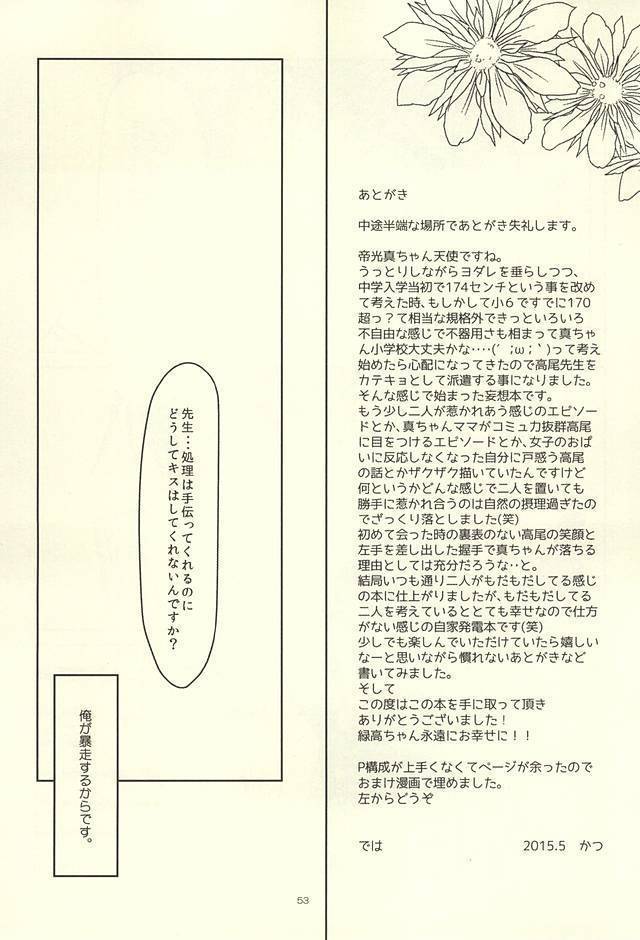 あとがき
中途半端な場所であとがき失礼します。
帝光真ちゃん天使ですね。
うっとりしながらヨダレを垂らしつつ、
中学入学当初で174センチという事を改め
て考えた時、もしかして小6ですでに170
超っ？て相当な規格外できっといろいろ
不自由な感じで不器用さも相まって真ちゃ
ん小学校大丈夫かな‥‥(´;ω;`)って考え
始めたら心配になってきたので高尾先生を
カテキョとして派遣する事になりました。
そんな感じで始まった妄想本です。
もう少し二人が惹かれあう感じのエピソー
ドとか、真ちゃんママがコミュ力抜群高尾
に目をつけるエピソードとか、女子のおぱ
いに反応しなくなった自分に戸惑う高尾
の話とかザクザク描いていたんですけど
何というかどんな感じで二人を置いても
勝手に惹かれ合うのは自然の摂理過ぎたの
でざっくり落としました(笑)
初めて会った時の裏表のない高尾の笑顔と
左手を差し出した握手で真ちゃんが落ちる
理由としては充分だろうな‥と。
結局いつも通り二人がもだもだしてる感じ
の本に仕上がりましたが、もだもだしてる
二人を考えているととても幸せなので仕方
がない感じの自家発電本です(笑)
少しでも楽しんでいただけていたら嬉しい
なーと思いながら慣れないあとがきなど
書いてみました。
そして
この度はこの本を手に取って頂き
ありがとうございました！
緑高ちゃん永遠にお幸せに！！
P構成が上手くなくてページが余ったので
おまけ漫画で埋めました。
左からどうぞ
では 2015.5 かつ
先生…処理は手伝ってくれるのに
どうしてキスはしてくれないんですか？
俺が暴走するからです。
53